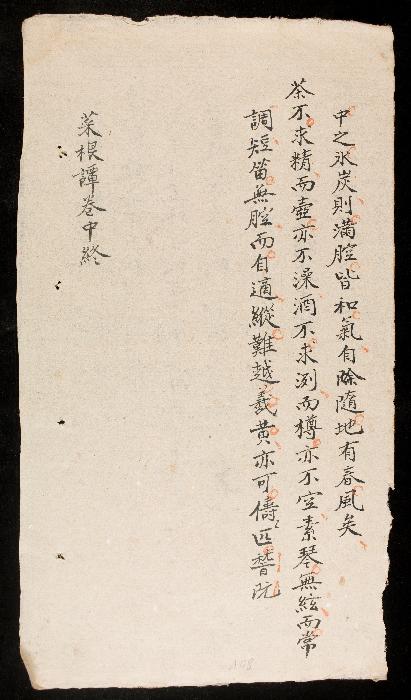 中之氷炭則滿腔皆和氣自除隨地有春風矣
茶不求精而壺亦不澡酒不求洌而樽亦不空素琴無絃而常
調短笛無腔而自適縱難越羲黄亦可儔匹嵆阮
菜根譚卷中終